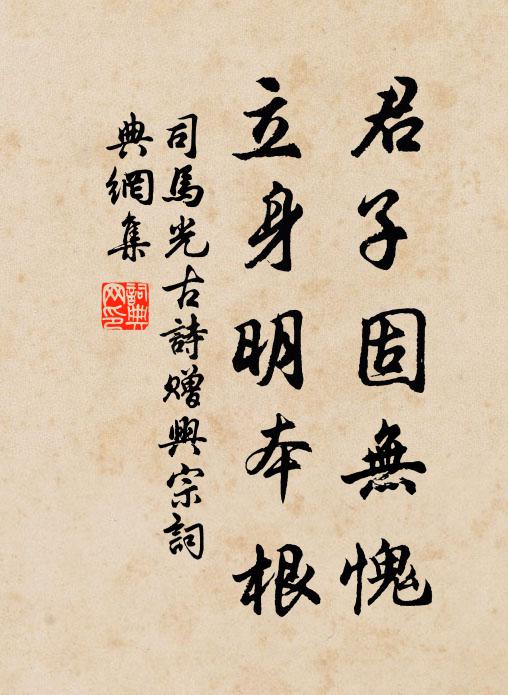 君子固無愧
立身明本根
司馬光古詩贈興宗詞
典網集
詞典網印